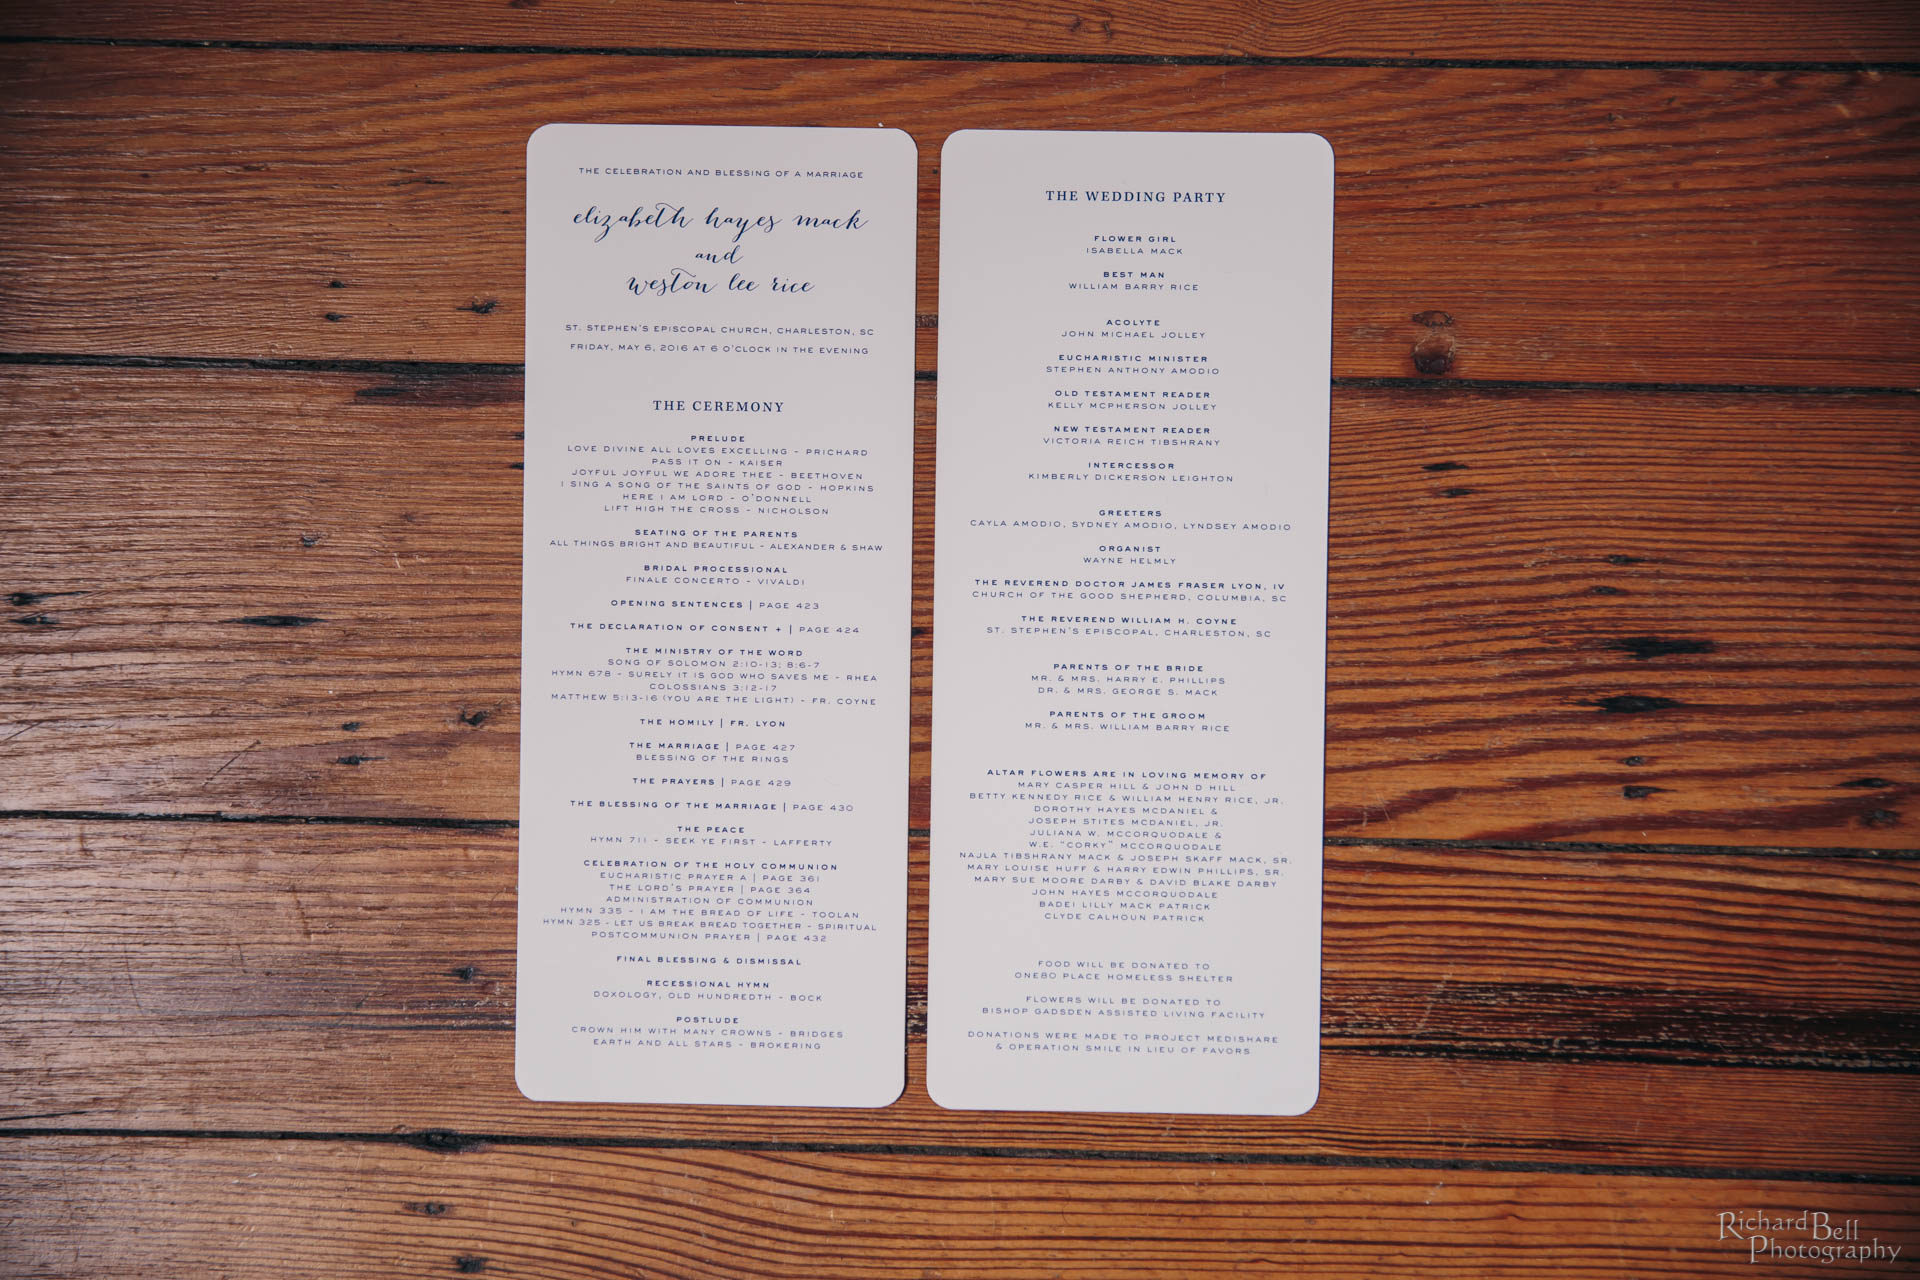 THE CELEBRATION AND BLESSING OF A MARRIAGE
elizabeth hayes mack
and
weston lee rice
ST. STEPHEN'S EPISCOPAL CHURCH, CHARLESTON, SC
FRIDAY, MAY 6, 2016 AT 6 O'CLOCK IN THE EVENING
THE CEREMONY
PRELUDE
LOVE DIVINE ALL LOVES EXCELLING - PRICHARD
PASS IT ON - KAISER
JOYFUL JOYFUL WE ADORE THEE - BEETHOVEN
I SING A SONG OF THE SAINTS OF GOD - HOPKINS
HERE I AM LORD - O'DONNELL
LIFT HIGH THE CROSS - NICHOLSON
SEATING OF THE PARENTS
ALL THINGS BRIGHT AND BEAUTIFUL - ALEXANDER & SHAW
BRIDAL PROCESSIONAL
FINALE CONCERTO - VIVALDI
OPENING SENTENCES | PAGE 423
THE DECLARATION OF CONSENT + | PAGE 424
THE MINISTRY OF THE WORD
SONG OF SOLOMON 2:10-13; 8:6-7
HYMN 678 - SURELY IT IS GOD WHO SAVES ME - RHEA
COLOSSIANS 3:12-17
MATTHEW 5:13-16 (YOU ARE THE LIGHT) - FR. COYNE
THE HOMILY | FR. LYON
THE MARRIAGE | PAGE 427
BLESSING OF THE RINGS
THE PRAYERS | PAGE 429
THE BLESSING OF THE MARRIAGE | PAGE 430
THE PEACE
HYMN 711 - SEEK YE FIRST - LAFFERTY
CELEBRATION OF THE HOLY COMMUNION
EUCHARISTIC PRAYER A | PAGE 361
THE LORD'S PRAYER | PAGE 364
ADMINISTRATION OF COMMUNION
HYMN 335 - I AM THE BREAD OF LIFE - TOOLAN
HYMN 325 - LET US BREAK BREAD TOGETHER - SPIRITUAL
POSTCOMMUNION PRAYER | PAGE 432
FINAL BLESSING & DISMISSAL
RECESSIONAL HYMN
DOXOLOGY, OLD HUNDREDTH - BOCK
POSTLUDE
CROWN HIM WITH MANY CROWNS - BRIDGES
EARTH AND ALL STARS - BROKERING
THE WEDDING PARTY
FLOWER GIRL
ISABELLA MACK
BEST MAN
WILLIAM BARRY RICE
ACOLYTE
JOHN MICHAEL JOLLEY
EUCHARISTIC MINISTER
STEPHEN ANTHONY AMODIO
OLD TESTAMENT READER
KELLY MCPHERSON JOLLEY
NEW TESTAMENT READER
VICTORIA REICH TIBSHRANY
INTERCESSOR
KIMBERLY DICKERSON LEIGHTON
GREETERS
CAYLA AMODIO, SYDNEY AMODIO, LYNDSEY AMODIO
ORGANIST
WAYNE HELMLY
THE REVEREND DOCTOR JAMES FRASER LYON, IV
CHURCH OF THE GOOD SHEPHERD, COLUMBIA, SC
THE REVEREND WILLIAM H. COYNE
ST. STEPHEN'S EPISCOPAL, CHARLESTON, SC
PARENTS OF THE BRIDE
MR. & MRS. HARRY E. PHILLIPS
DR. & MRS. GEORGE S. MACK
PARENTS OF THE GROOM
MR. & MRS. WILLIAM BARRY RICE
ALTAR FLOWERS ARE IN LOVING MEMORY OF
MARY CASPER HILL & JOHN D HILL
BETTY KENNEDY RICE & WILLIAM HENRY RICE, JR.
DOROTHY HAYES MCDANIEL &
JOSEPH STITES MCDANIEL, JR.
JULIANA W. MCCORQUODALE &
W.E. "CORKY" MCCORQUODALE
NAJLA TIBSHRANY MACK & JOSEPH SKAFF MACK, SR.
MARY LOUISE HUFF & HARRY EDWIN PHILLIPS, SR.
MARY SUE MOORE DARBY & DAVID BLAKE DARBY
JOHN HAYES MCCORQUODALE
BADEI LILLY MACK PATRICK
CLYDE CALHOUN PATRICK
FOOD WILL BE DONATED TO
ONE80 PLACE HOMELESS SHELTER
FLOWERS WILL BE DONATED TO
BISHOP GADSDEN ASSISTED LIVING FACILITY
DONATIONS WERE MADE TO PROJECT MEDISHARE
& OPERATION SMILE IN LIEU OF FAVORS
Richard Bell
Photography